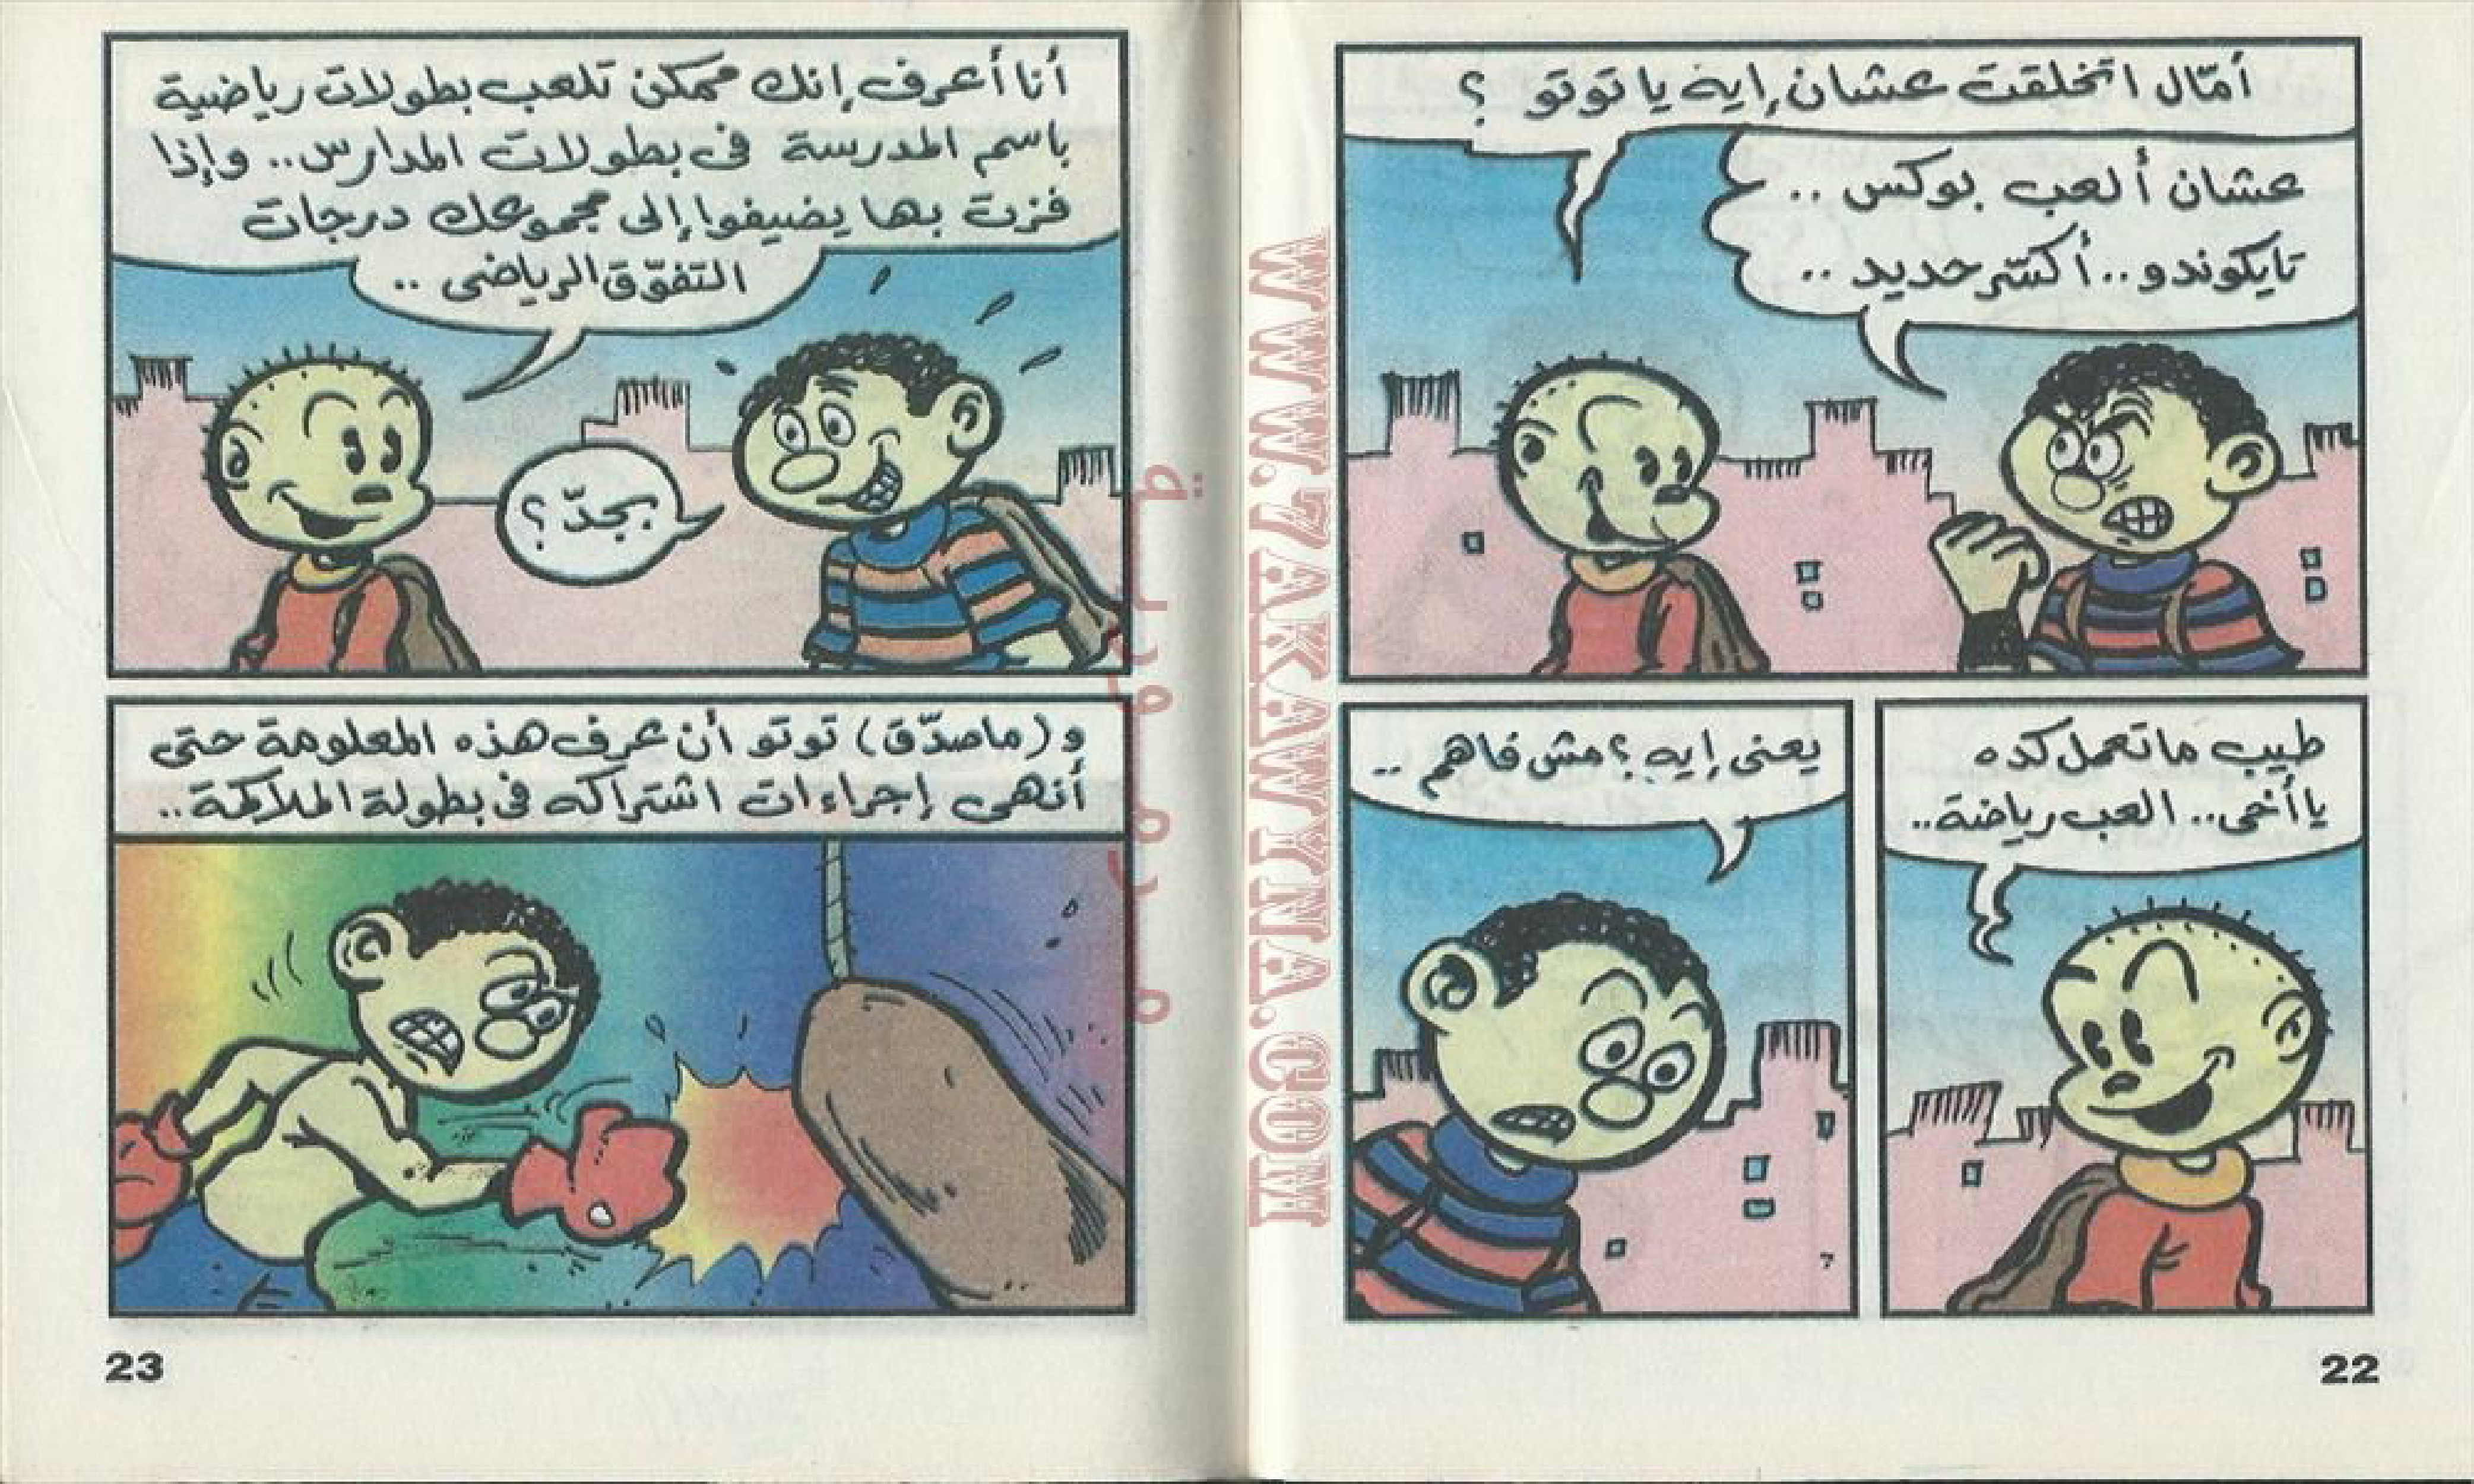 أمّال اتخلقت عشان إيه يا توتو ؟
عشان ألعب بوكس ..
تايكوندو .. أكسّر حديد ..
طيب ما تعمل كده
يا أخى .. العب رياضة ..
يعنى إيه ؟ مش فاهم ..
22
أنا أعرف إنك ممكن تلعب بطولات رياضية
باسم المدرسة فى بطولات المدارس .. وإذا
فزت بها يضيفوا إلى مجموعك درجات
التفوّق الرياضى ..
بجدّ ؟
و (ماصدّق) توتو أن عرف هذه المعلومة حتى
أنهى إجراءات اشتراكه فى بطولة الملاكمة ..
23